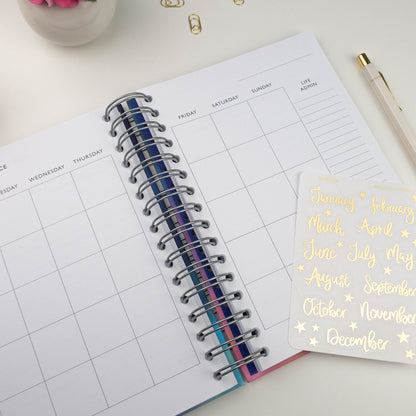 CE
ESDAY
WEDNESDAY
THURSDAY
FRIDAY
SATURDAY
SUNDAY
LIFE
ADMIN
January February
March April
June July May
August September
October November
December